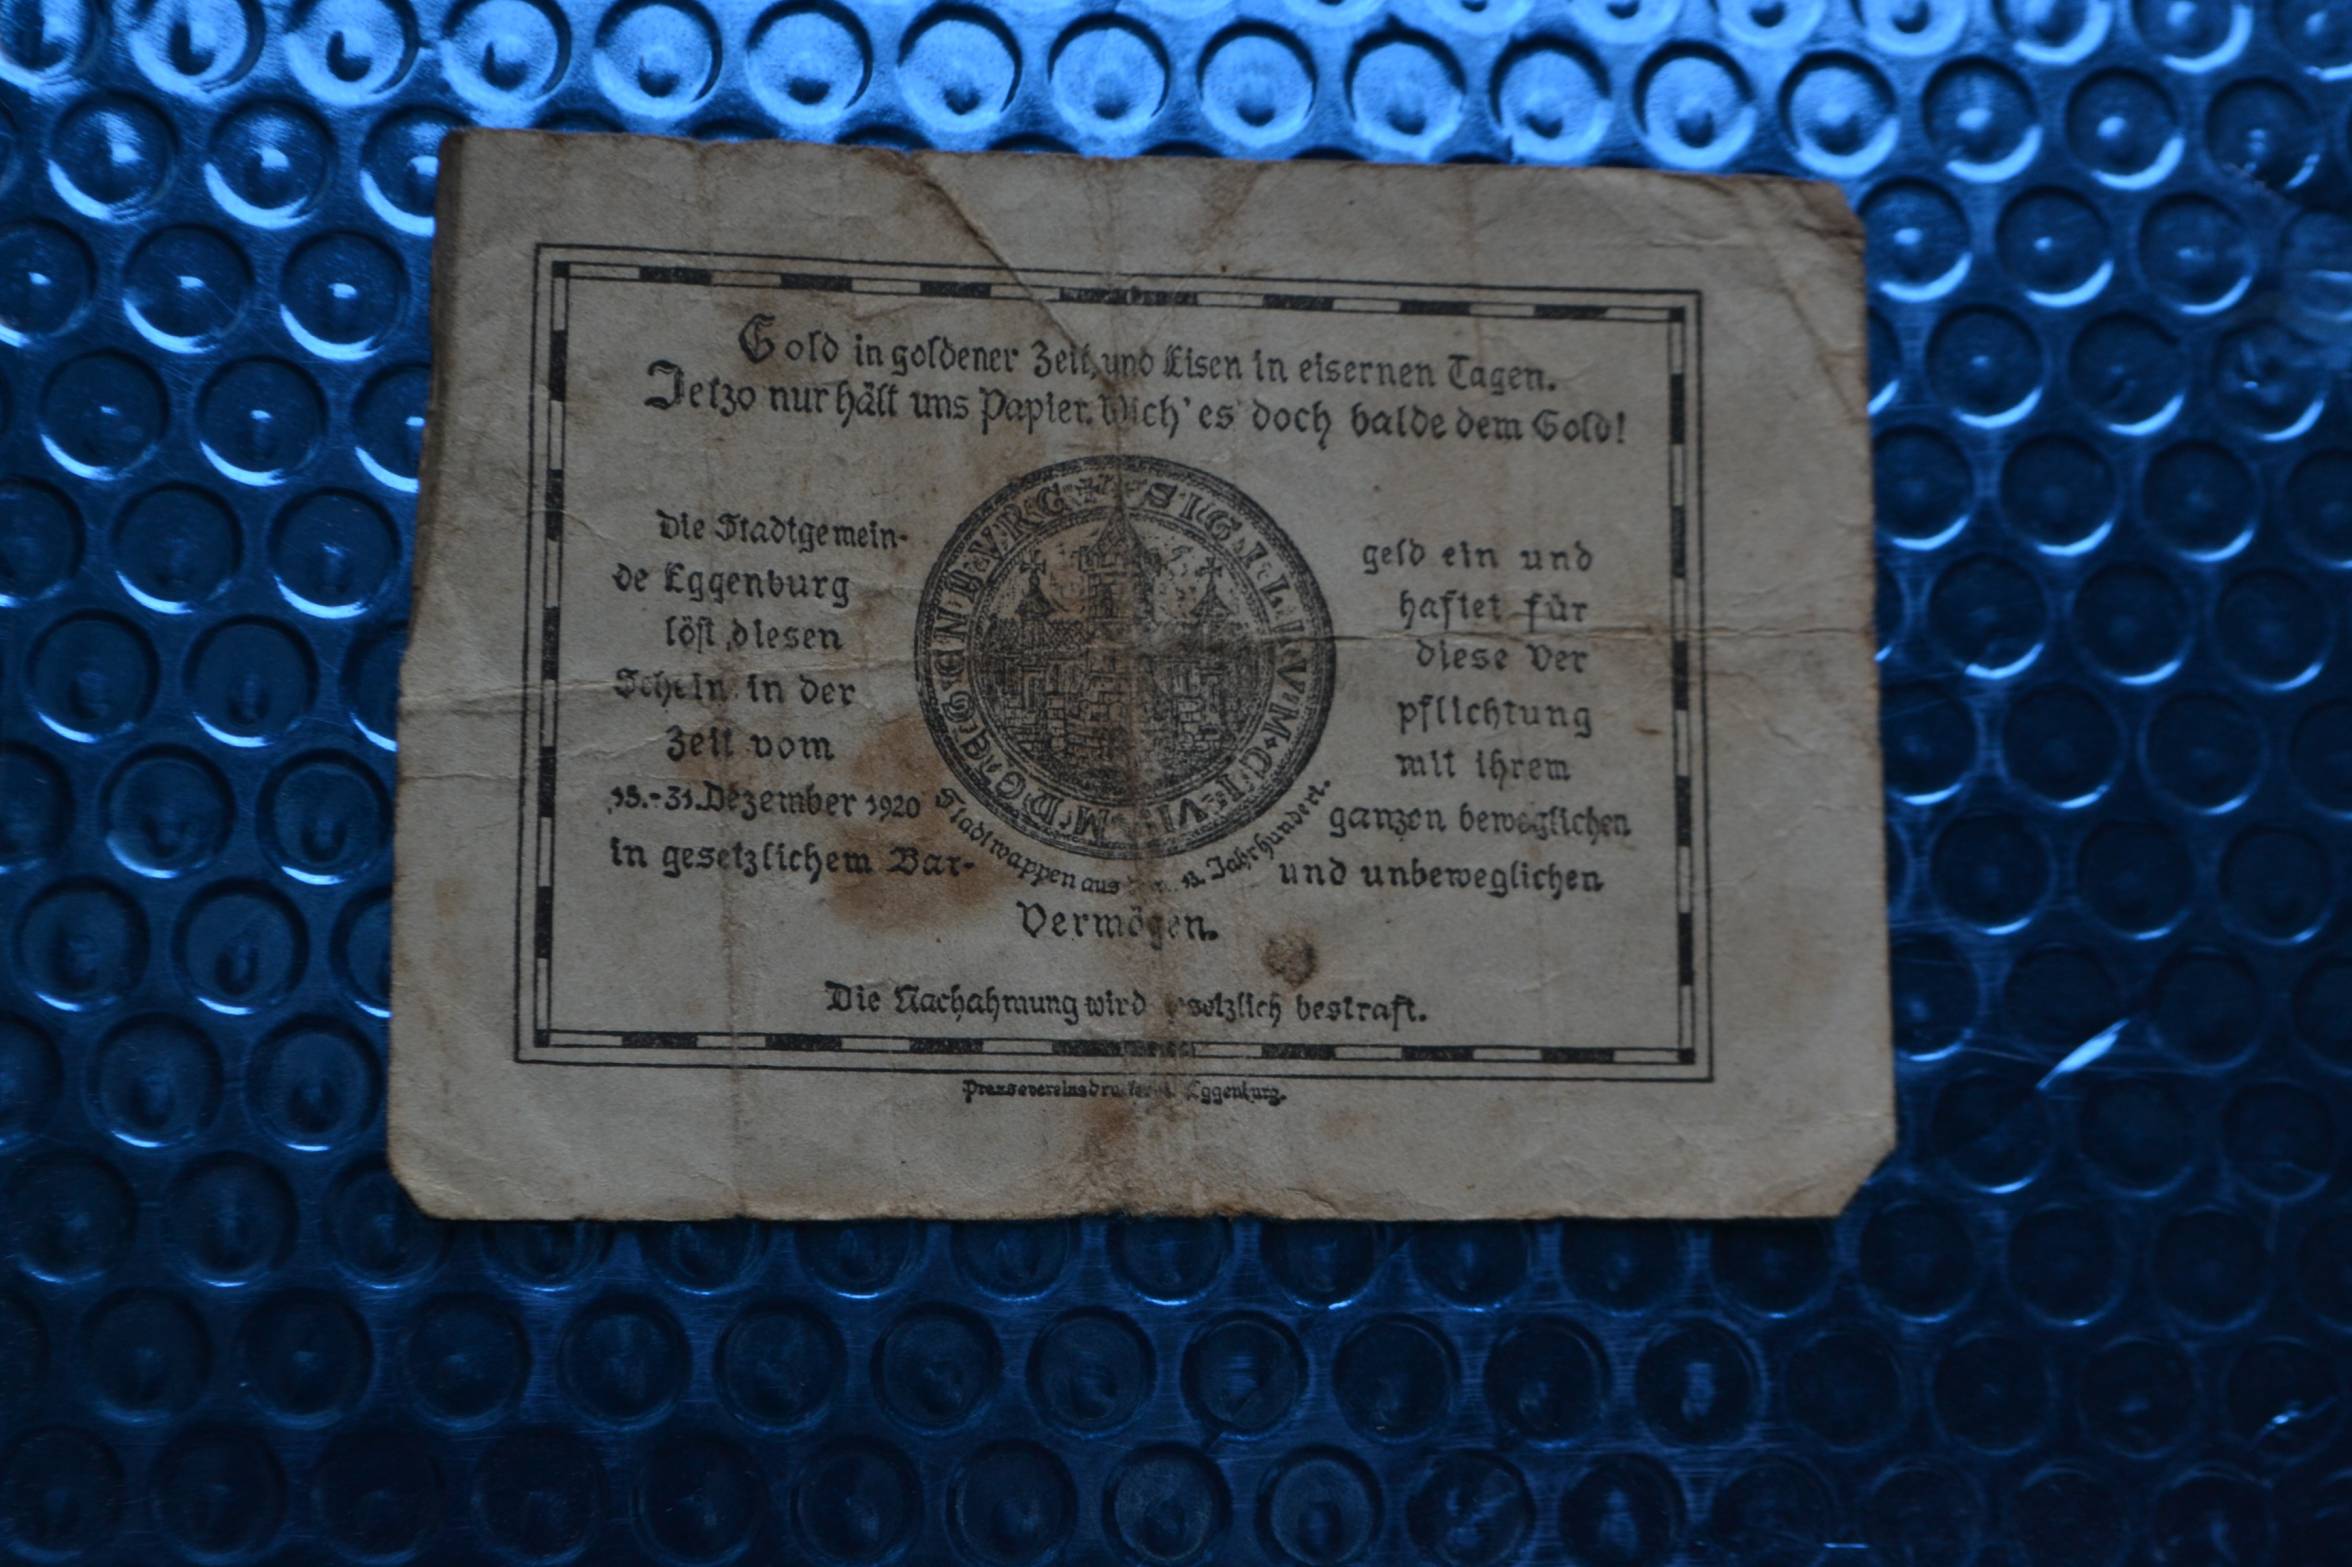 Gold in goldener Zeit, und Eisen in eisernen Tagen.
Jetzo nur hält uns Papier. Wich' es doch balde dem Gold!
Die Stadtgemein-
de Eggenburg
löst diesen
Schein in der
Zeit vom
15.-31. Dezember 1920
in gesetzlichem Bar-
geld ein und
haftet für
diese Ver
pflichtung
mit ihrem
ganzen beweglichen
und unbeweglichen
Vermögen.
SIGILLVM CIVI
EGENBVRG
Stadtwappen aus Jahrhundert.
Die Nachahmung wird gesetzlich bestraft.
Pressevereinsdruckerei Eggenburg.